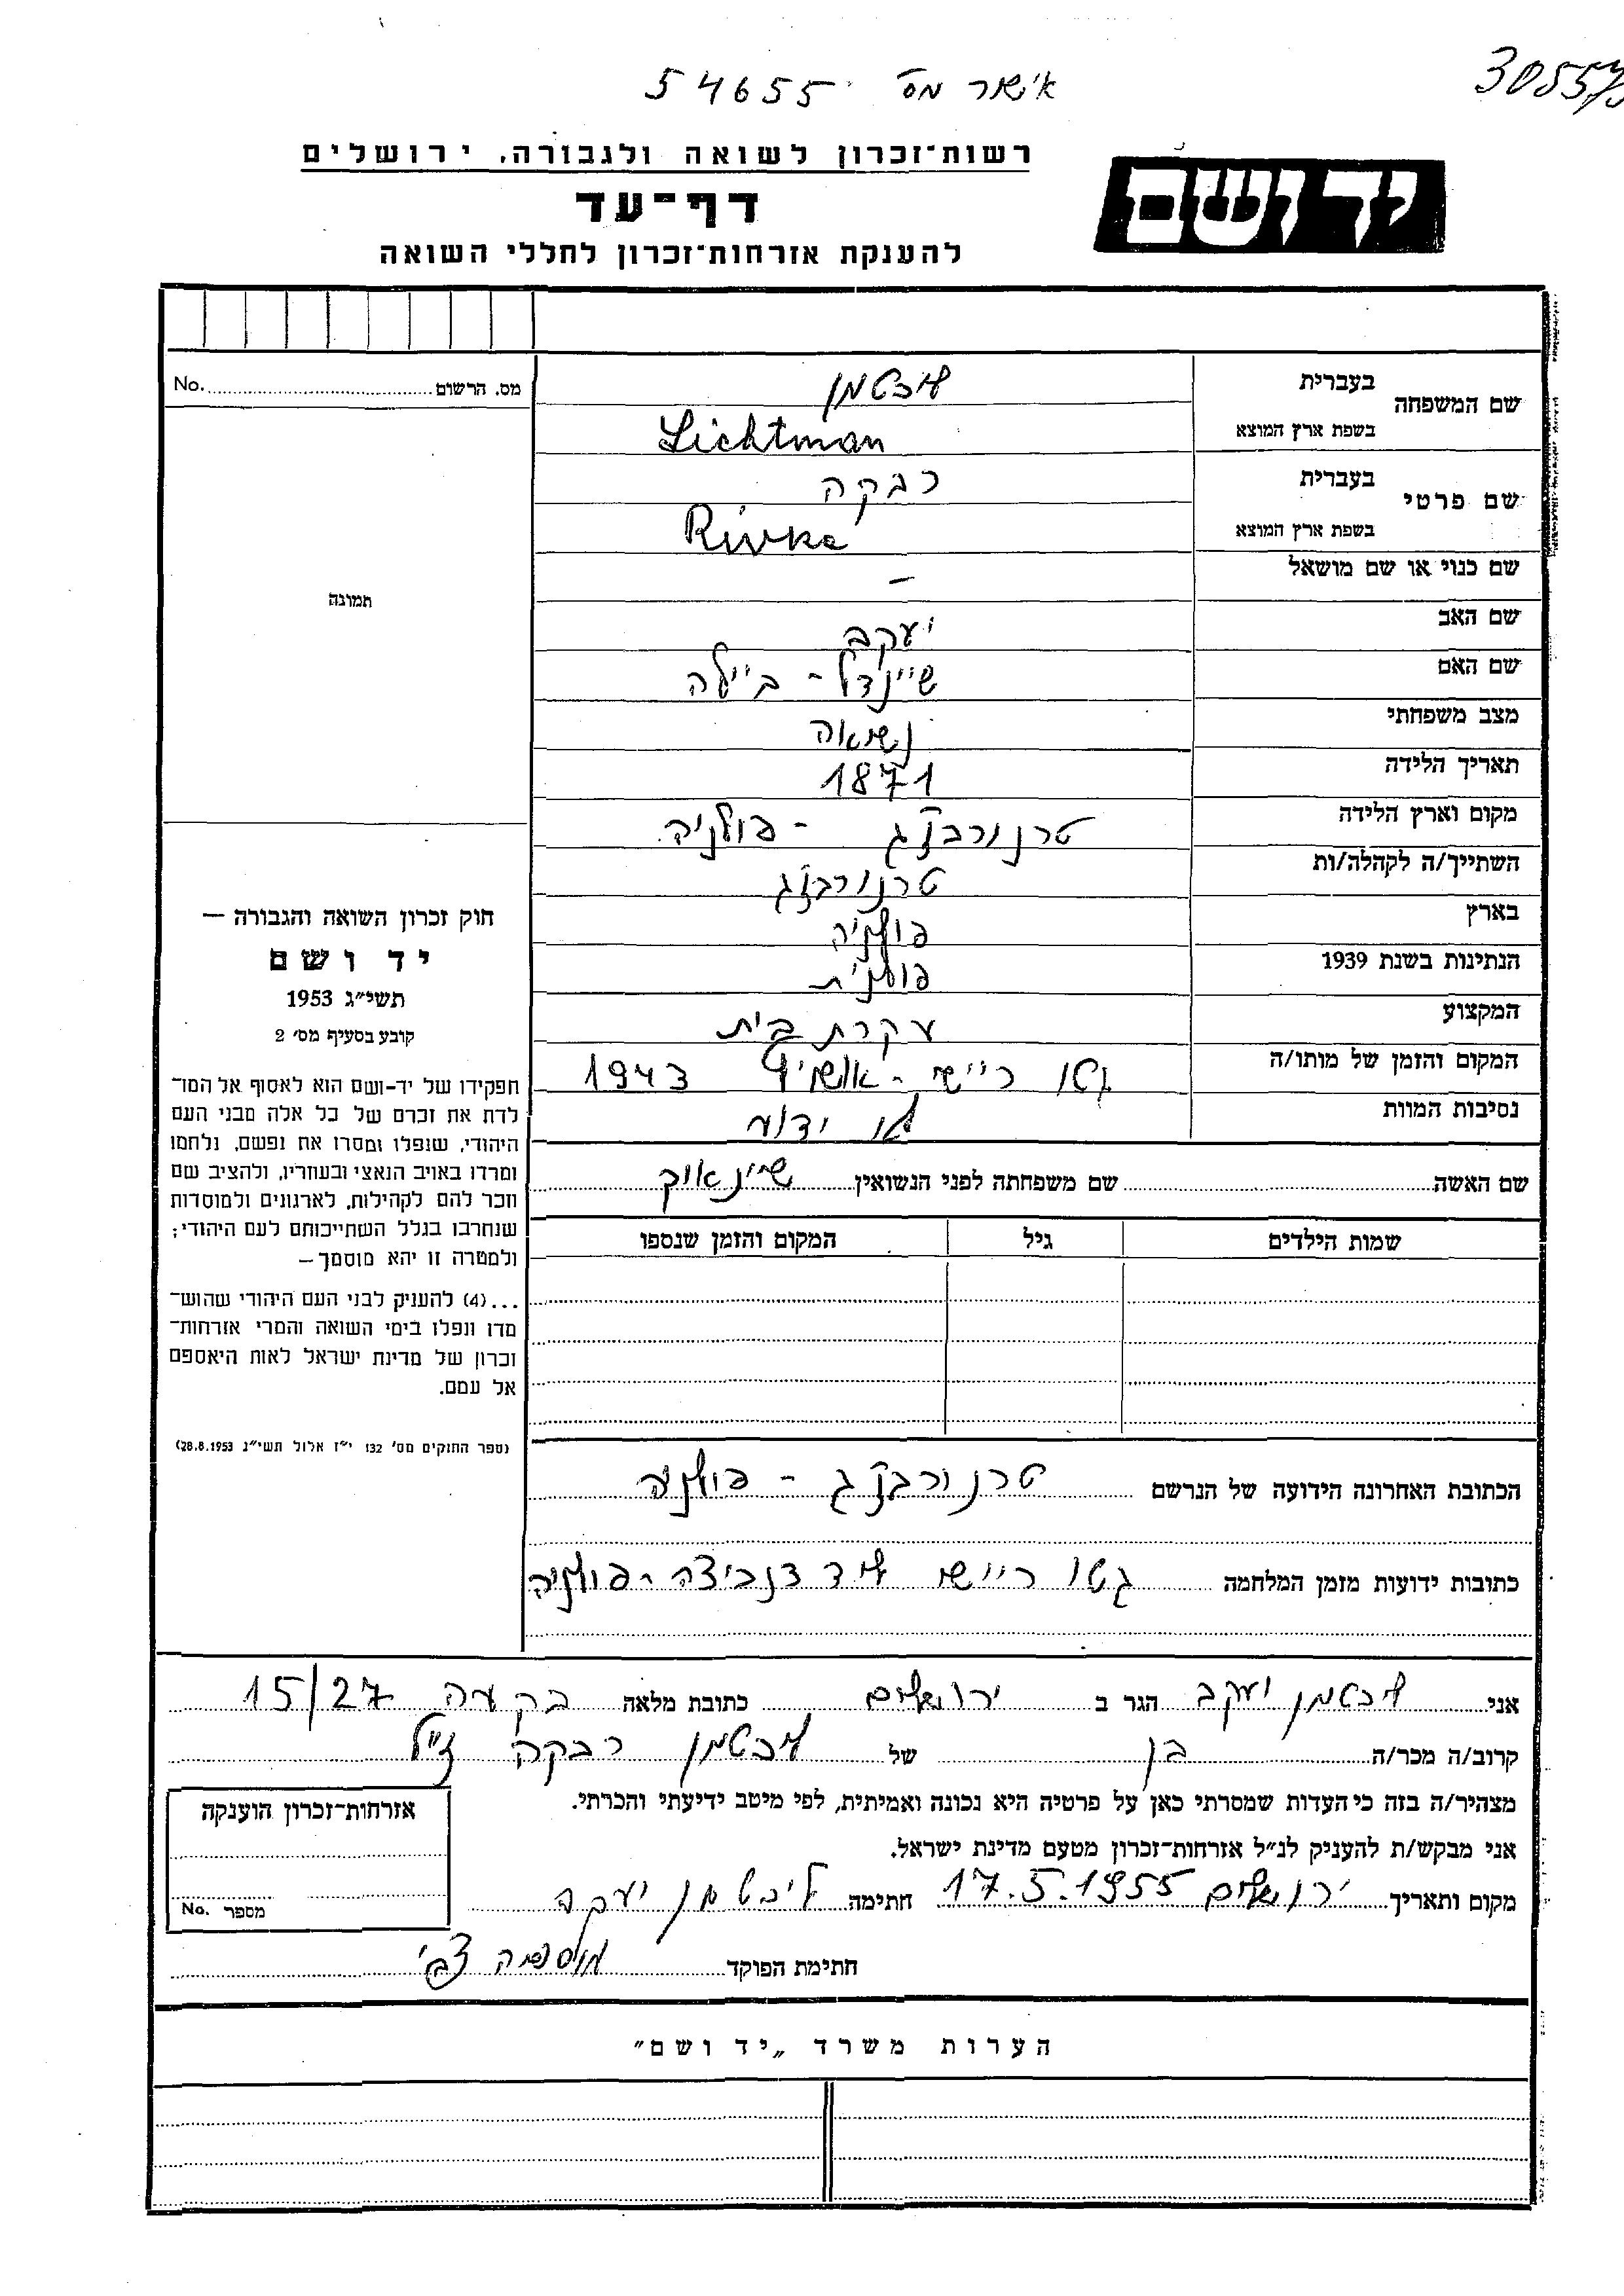 אישור מס' 54655
30557
רשות־זכרון לשואה ולגבורה, ירושלים
יד ושם
דף־עד
להענקת אזרחות־זכרון לחללי השואה
מס. הרשום No.
תמונה
שם המשפחה
בעברית ליכטמן
בשפת ארץ המוצא Lichtman
שם פרטי
בעברית רבקה
בשפת ארץ המוצא Rivka
שם כנוי או שם מושאל –
שם האב יעקב
שם האם שיינדל - ביילה
מצב משפחתי נשואה
תאריך הלידה 1871
מקום וארץ הלידה טרנוברזג - פולניה
השתייך/ה לקהלה/ות טרנוברזג
בארץ פולניה
הנתינות בשנת 1939 פולנית
המקצוע עקרת בית
המקום והזמן של מותו/ה גטו ריישי - 1943
נסיבות המוות לא ידוע
שם האשה שם משפחתה לפני הנשואין
שמות הילדים גיל המקום והזמן שנספו
הכתובת האחרונה הידועה של הנרשם טרנוברזג - פולניה
כתובות ידועות מזמן המלחמה גטו ריישי ליד דנביצה - פולניה
חוק זכרון השואה והגבורה —
יד ושם
תשי"ג 1953
קובע בסעיף מס' 2
תפקידו של יד-ושם הוא לאסוף אל המו־
לדת את זכרם של כל אלה מבני העם
היהודי, שנפלו ומסרו את נפשם, נלחמו
ומרדו באויב הנאצי ובעוזריו, ולהציב שם
וזכר להם לקהילות, לארגונים ולמוסדות
שנחרבו בגלל השתייכותם לעם היהודי;
ולמטרה זו יהא מוסמך—
...(4) להעניק לבני העם היהודי שהוש־
מדו ונפלו בימי השואה והמרי אזרחות־
זכרון של מדינת ישראל לאות היאספם
אל עמם.
(ספר החוקים מס' 132 י"ז אלול תשי"ג 28.8.1953)
אני ליכטמן יעקב הגר ב ירושלים כתובת מלאה בקעה 15/27
קרוב/ה מכר/ה בן של ליכטמן רבקה ז"ל
מצהיר/ה בזה כי העדות שמסרתי כאן על פרטיה היא נכונה ואמיתית, לפי מיטב ידיעתי והכרתי.
אני מבקש/ת להעניק לנ"ל אזרחות־זכרון מטעם מדינת ישראל.
מקום ותאריך ירושלים 17.5.1955 חתימה ליכטמן יעקב
חתימת הפוקד צבי
אזרחות־זכרון הוענקה
מספר No.
הערות משרד „יד ושם"